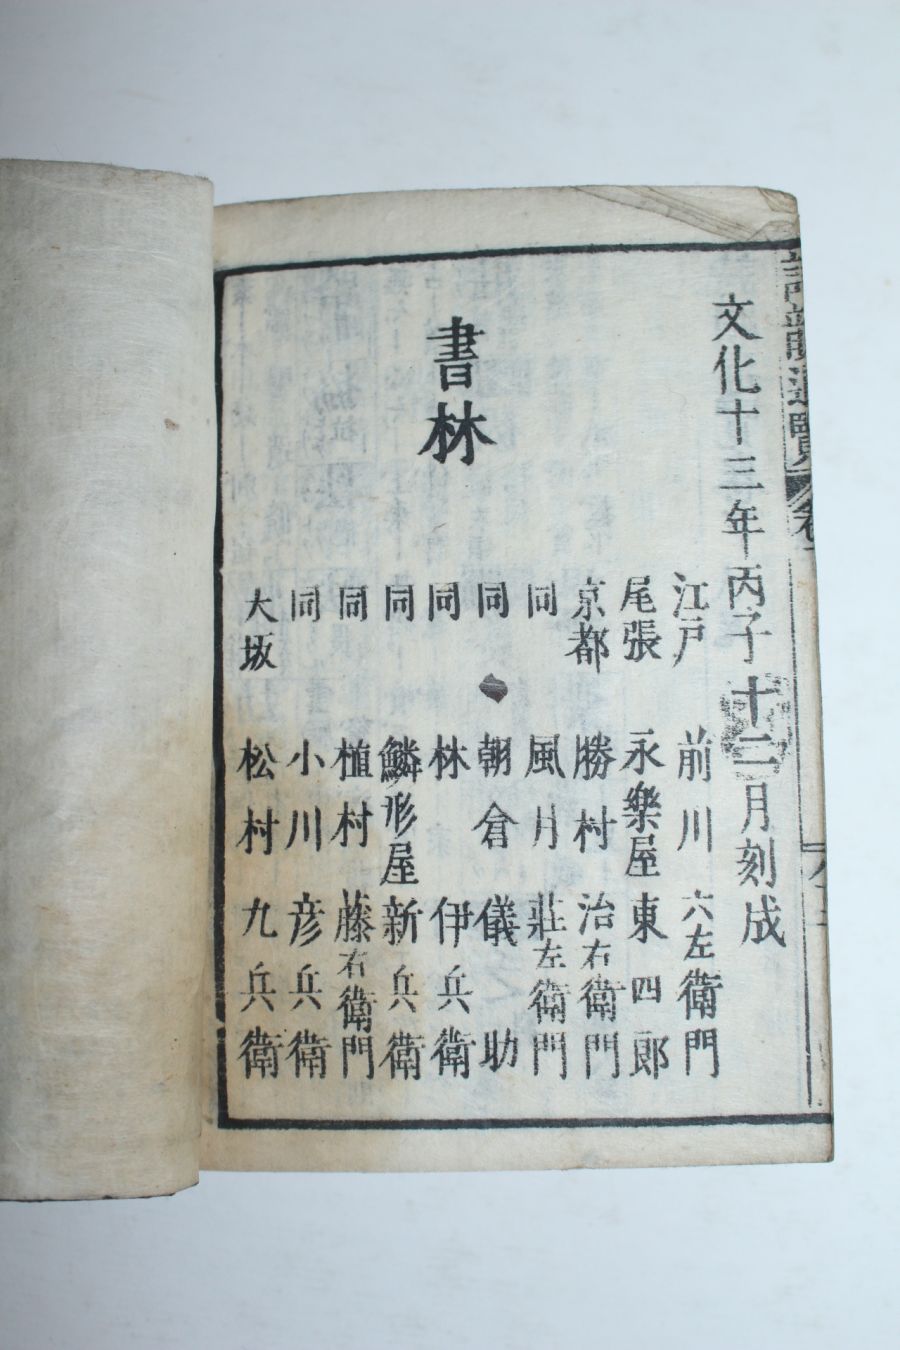 文化十三年丙子十二月刻成
江戸 前川六左衛門
尾張 永樂屋東四郎
京都 勝村治右衛門
同 風月莊左衛門
同 朝倉儀助
書林
同 林伊兵衛
同 鱗形屋新兵衛
同 植村藤右衛門
同 小川彦兵衛
大坂 松村九兵衛